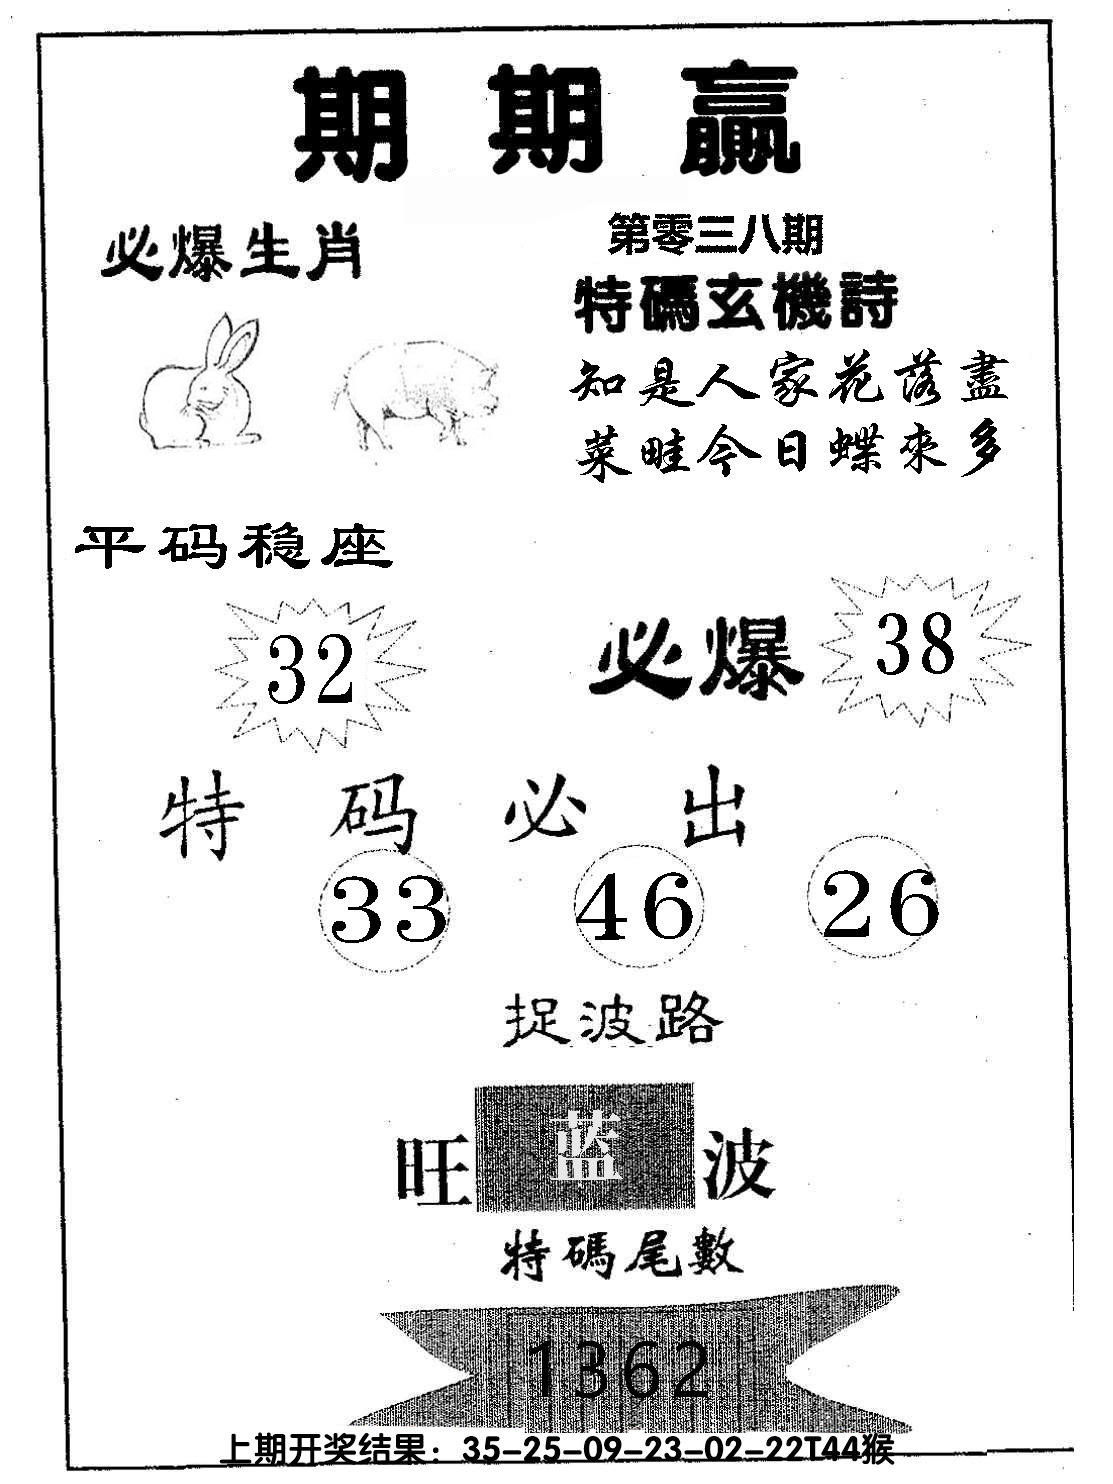 期期赢
必爆生肖
第零三八期
特碼玄機詩
知是人家花落盡
菜畦今日蝶來多
平码稳座
32
必爆 38
特码必出
33 46 26
捉波路
旺 蓝 波
特碼尾數
1362
上期开奖结果：35-25-09-23-02-22T44猴